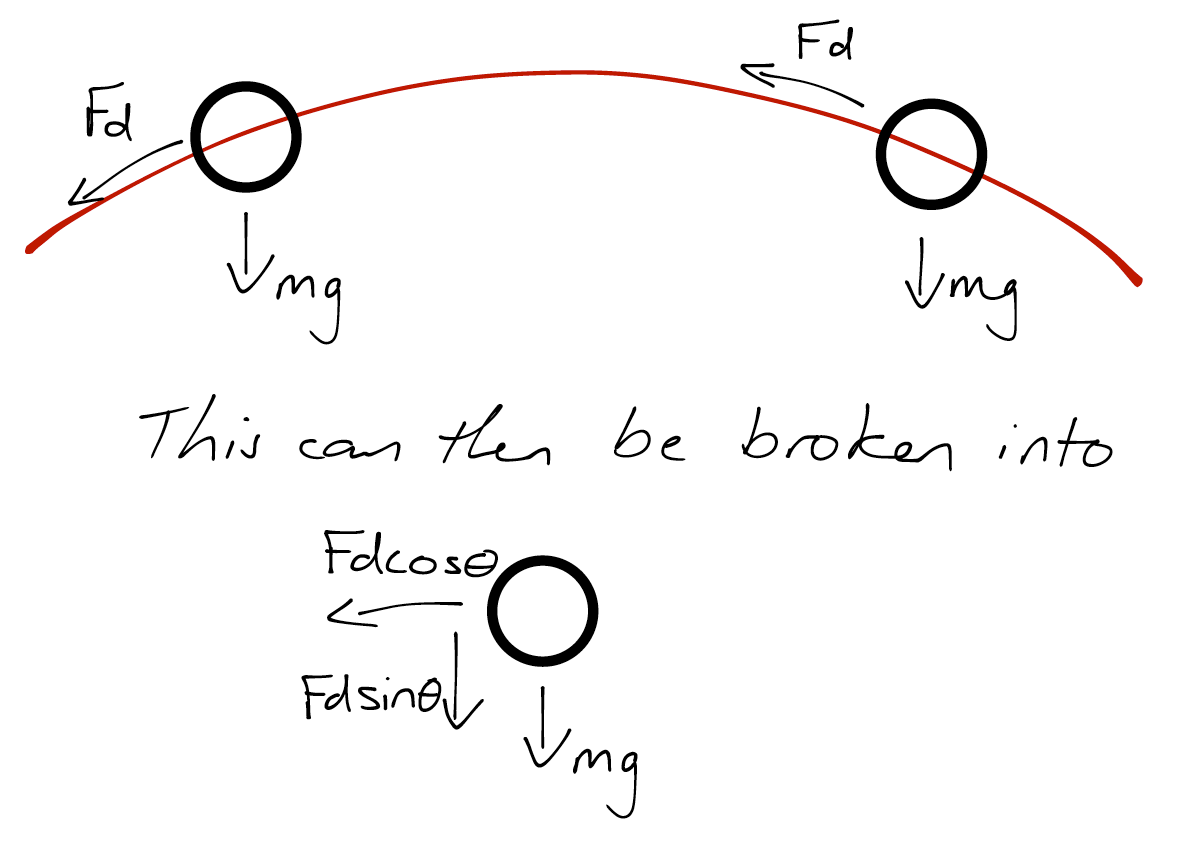 Fd
Fd
mg
mg
This can then be broken into
Fdcosθ
Fdsinθ
mg